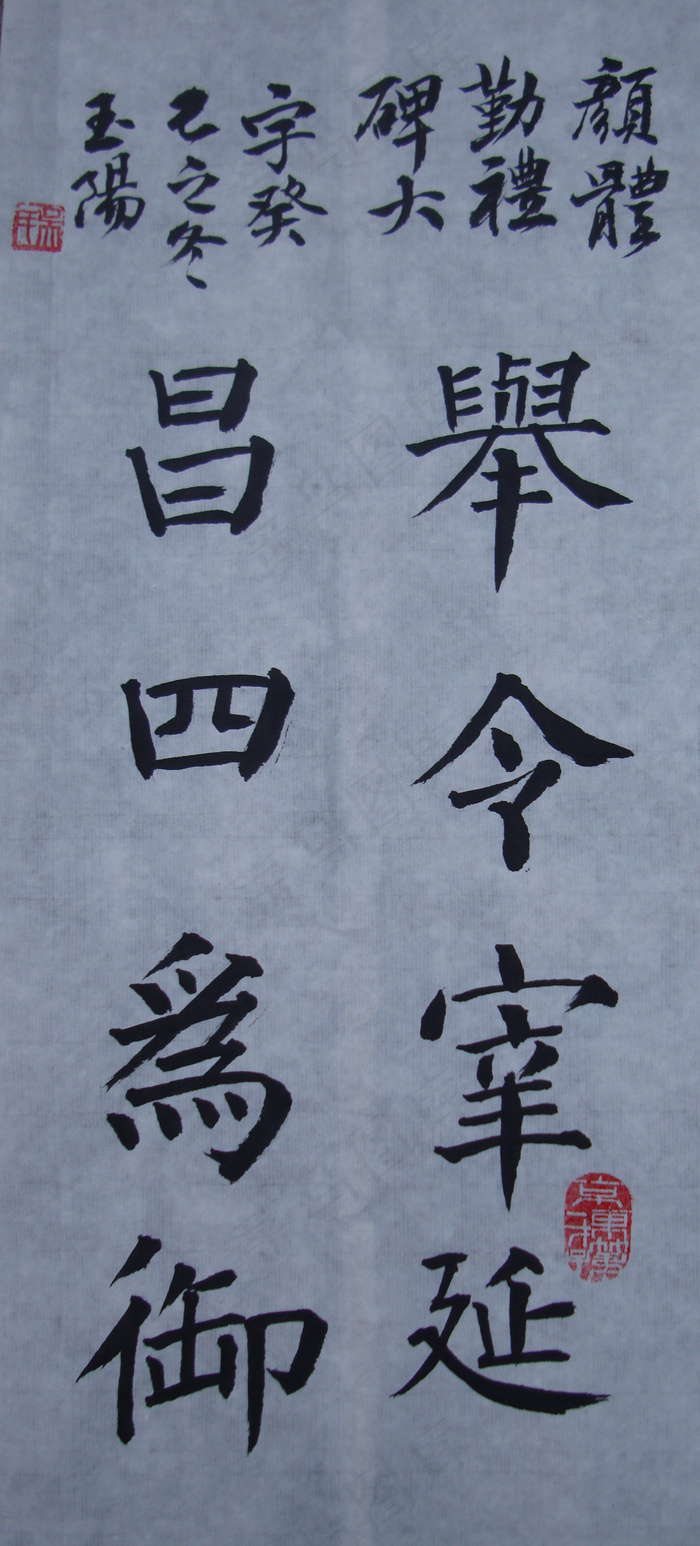 顏體
勤禮
碑大
字癸
巳之冬
玉陽
舉令宰延
昌四爲御